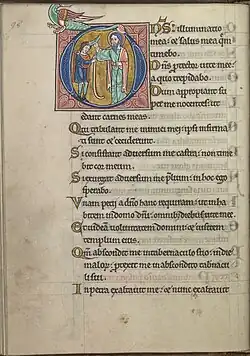 DNS illuminatio
mea: & salus mea que
timebo.
Dns protector uite mee:
a quo trepidabo.
Dum appropiant su
per me nocentes: ut
edant carnes meas.
Qui tribulant me inimici mei: ipsi infirma
ti sunt & ceciderunt.
Si consistant aduersum me castra: non time
bit cor meum.
Si exurgat aduersum me plium: in hoc ego
sperabo.
Unam petii a dno hanc requiram: ut inha
bitem in domo dni omnib; dieb; uite mee.
Ut uideam uoluntatem domini: & uisitem
templum eius.
Qm abscondit me in tabernaculo suo: in die
malor; protexit me in abscondito tabnacu
li sui.
In petra exaltauit me: & nunc exaltauit